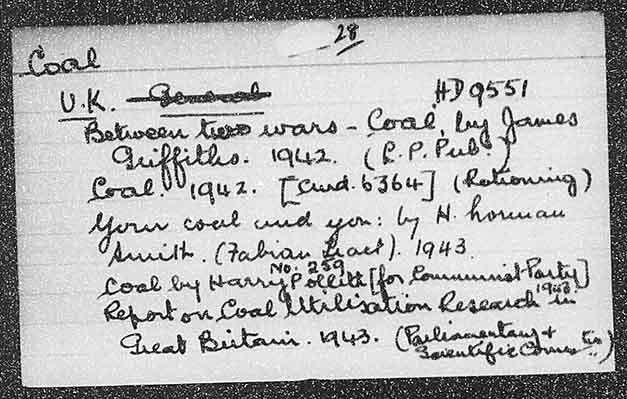 28
Coal
U.K. General HD9551
Between two wars - Coal, by James
Griffiths. 1942. (L.P. Pub.)
Coal. 1942. [Cmd. 6364] (Rationing)
Your coal and you: by H. Norman
Smith. (Fabian Tract). 1943.
No. 259
Coal by Harry Pollitt [for Communist Party]
1943
Report on Coal Utilisation Research in
Great Britain. 1943. (Parliamentary &
Scientific Committee)